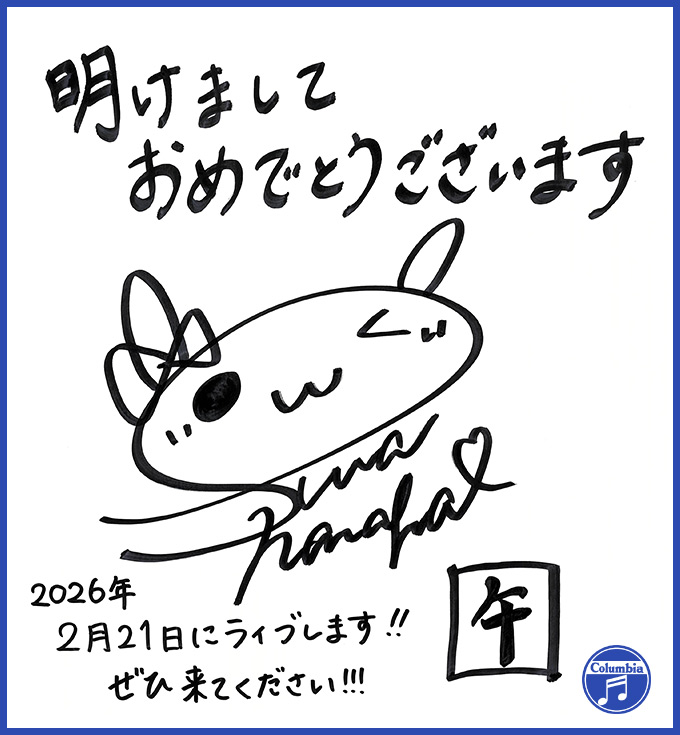 明けまして
おめでとうございます
2026年
2月21日にライブします!!
ぜひ来てください!!!
午
Columbia